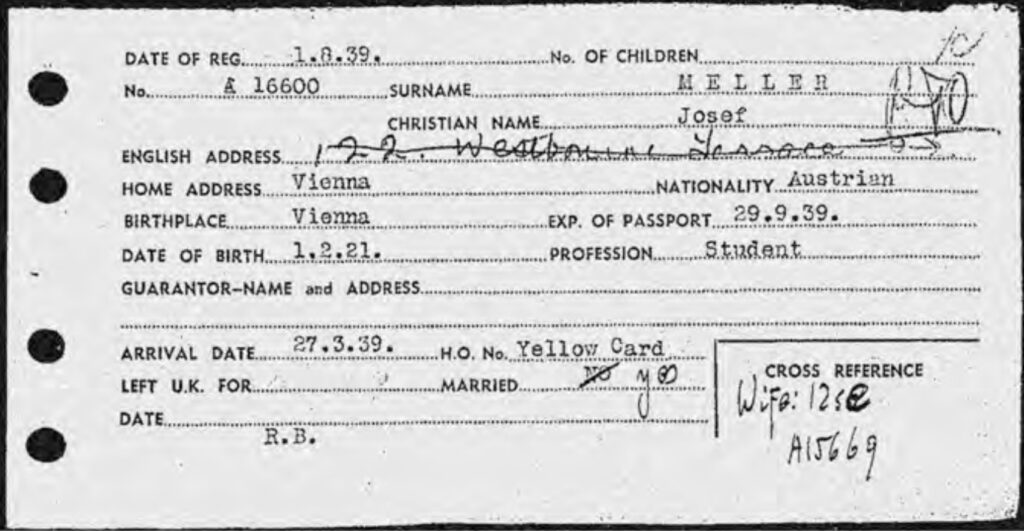 DATE OF REG. 1.8.39. No. OF CHILDREN
No. A 16600 SURNAME MELLER
CHRISTIAN NAME Josef
ENGLISH ADDRESS 122. Westbourne Terrace
HOME ADDRESS Vienna NATIONALITY Austrian
BIRTHPLACE Vienna EXP. OF PASSPORT 29.9.39.
DATE OF BIRTH 1.2.21. PROFESSION Student
GUARANTOR-NAME and ADDRESS
ARRIVAL DATE 27.3.39. H.O. No. Yellow Card
LEFT U.K. FOR MARRIED No yes
CROSS REFERENCE
DATE
Wife:
R.B.
A15669